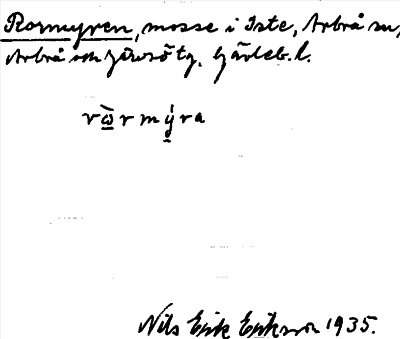 Rormyren, mosse i Iste, Arbrå sn,
Arbrå och Järvsö tg, Gävleb. l.
vὼ̲rmý̲ra
Nils Erik Erikson 1935.